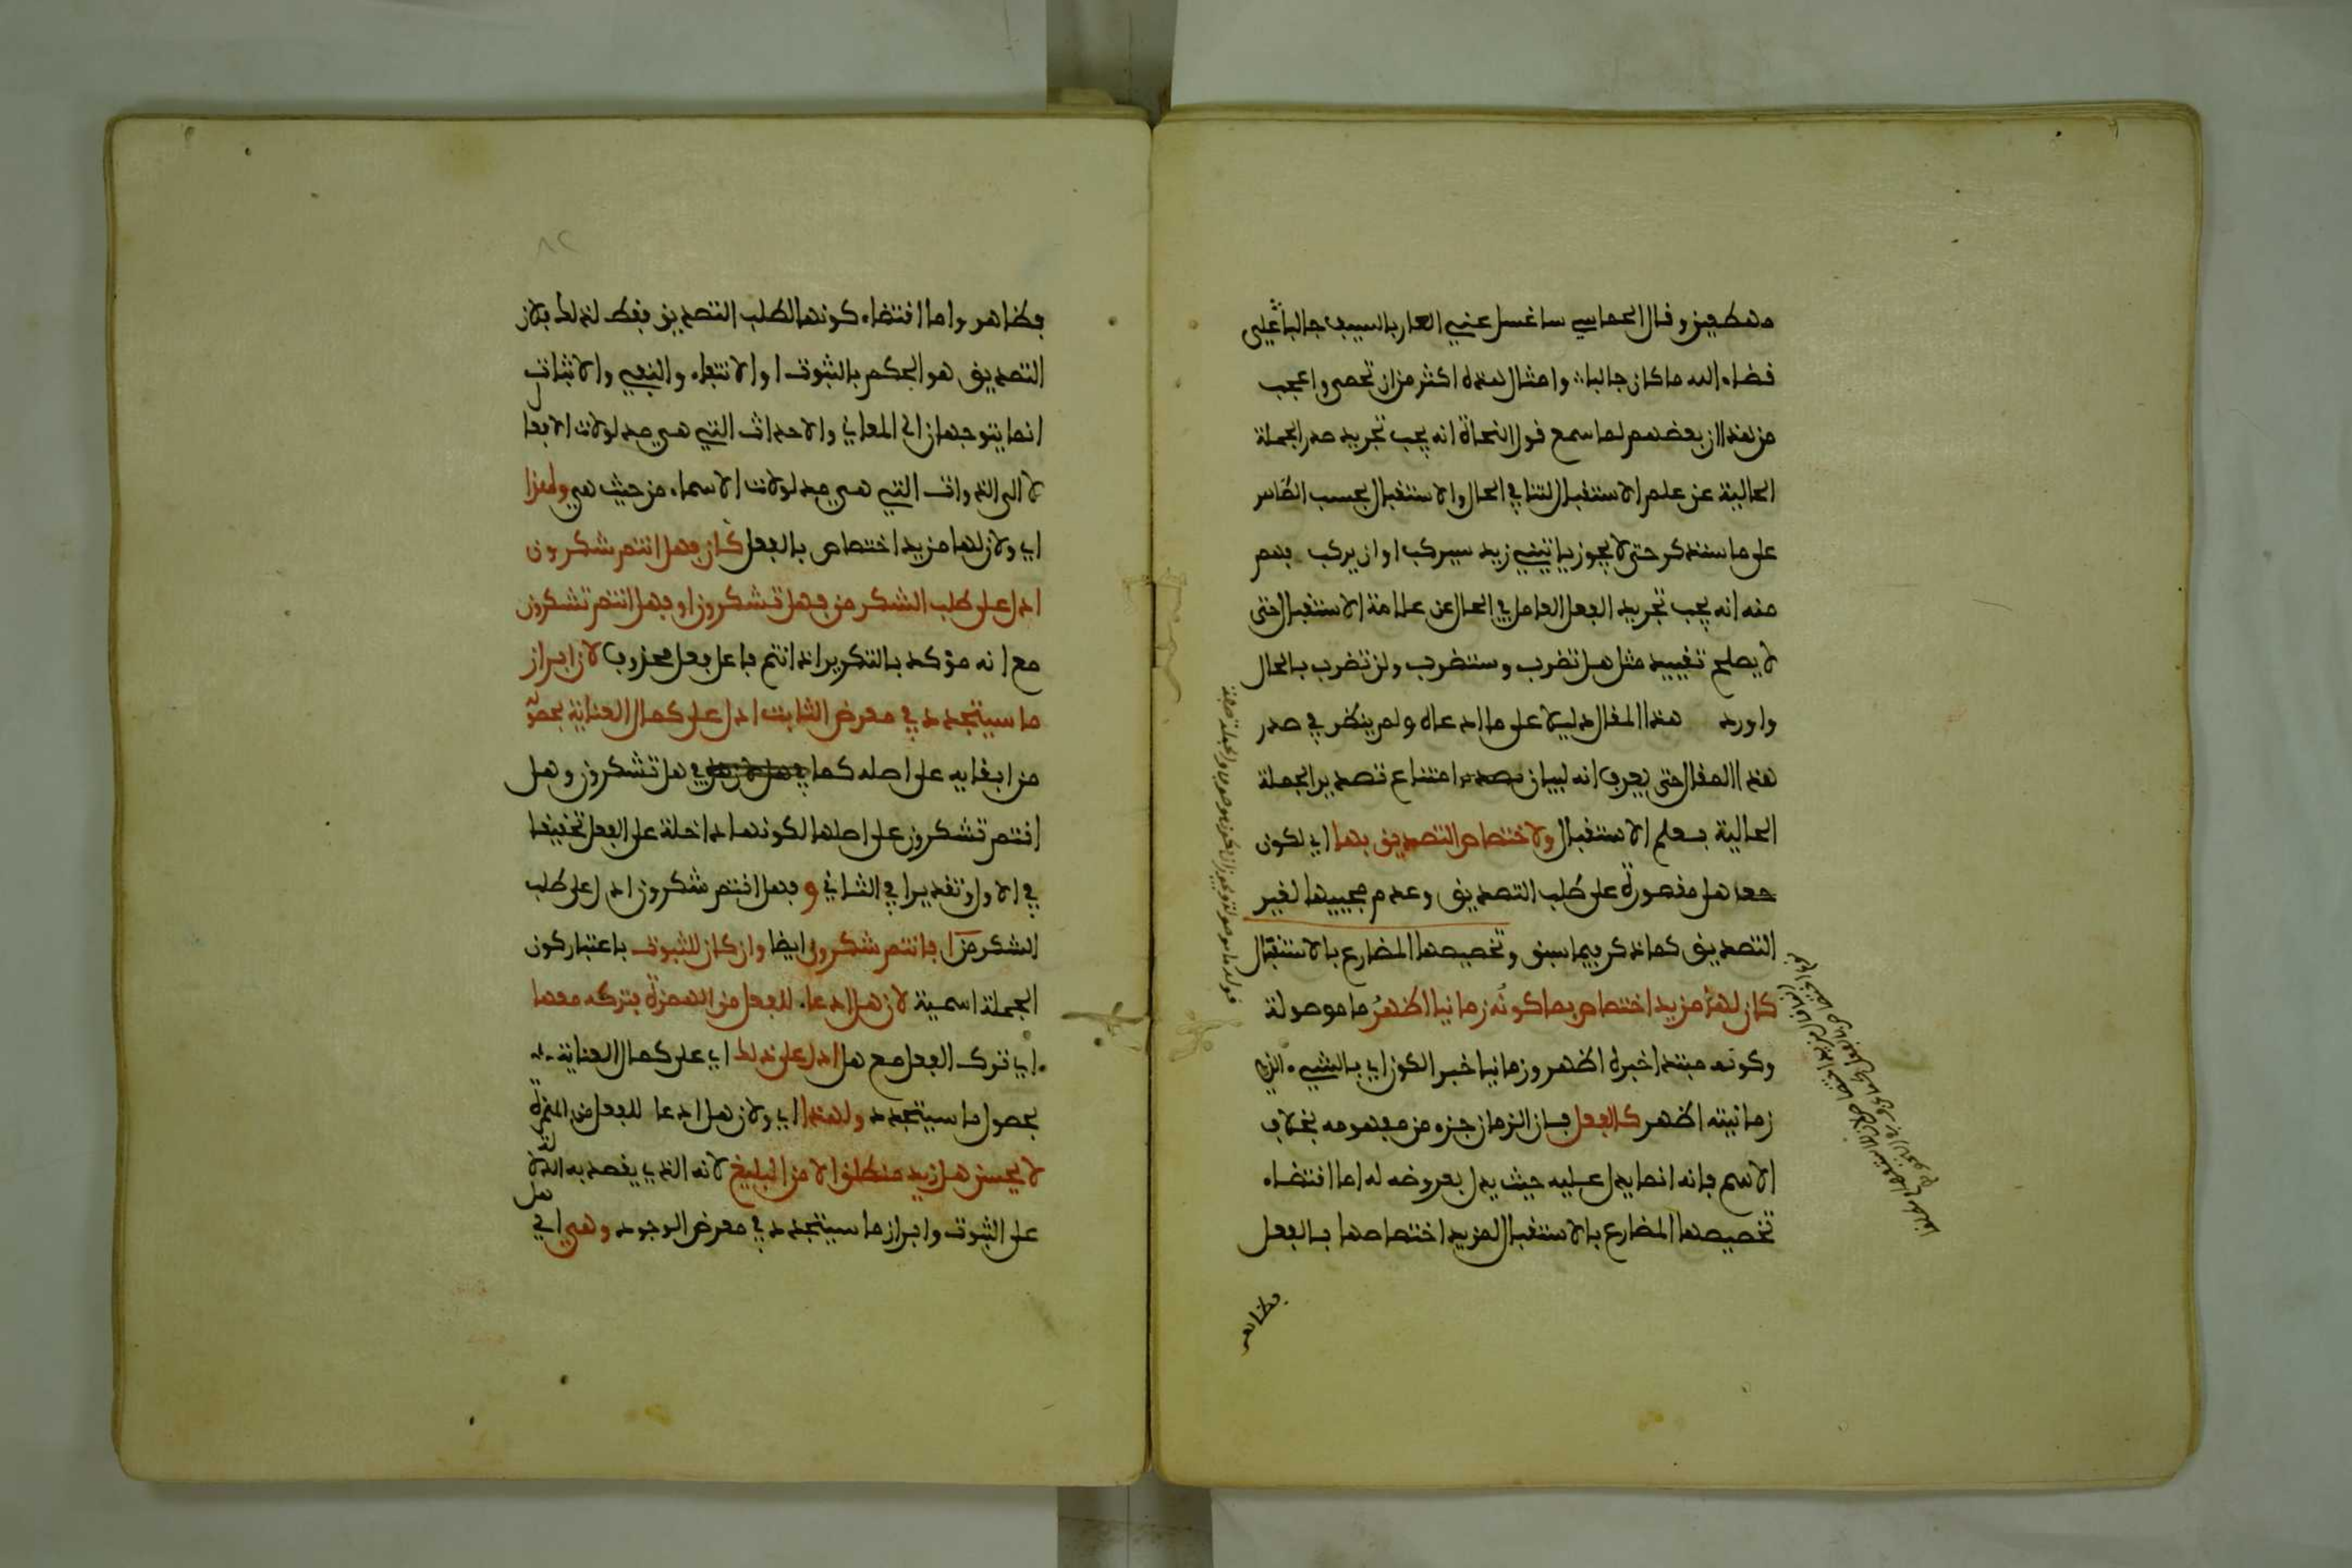 مهطعين وقال الحماسي ساغسل عني العار بالسيف جالبا علي
قضاء الله ما كان جالبا وامثال هذه اكثر من ان تحصى واعجب
من هذا ان بعضهم لما سمع قول النحاة انه يجب تجريد صدر الجملة
الحالية عن علم الاستقبال لتنافي الحال والاستقبال بحسب الظاهر
على ما سنذكر حتى لا يجوز ياتيني زيد سيركب او لن يركب فهم
منه انه يجب تجريد الفعل العامل في الحال عن علامة الاستقبال حتى
لا يصلح تقييد مثل هل تضرب وستضرب ولن تضرب بالحال
واورد هذا المقال دليلا على ما ادعاه ولم ينظر في صدر
هذا المقال حتى يعرف انه لبيان امتناع تصدير الجملة
الحالية بعلم الاستقبال ولاختصاص التصديق بها اي لكون
هل مقصورة على طلب التصديق وعدم مجييها لغير
التصديق كما ذكر فيما سبق وتخصيصها المضارع بالاستقبال
كان لها مزيد اختصاص بما كونه زمانيا اظهر ما موصولة
وكونه مبتدا خبره اظهر وزمانيا خبر الكون اي بالشيء الذي
زمانيته اظهر كالفعل فان الزمان جزء من مفهومه بخلاف
الاسم فانه انما يدل عليه حيث يدل بعروضه له اما اقتضاء
تخصيصها المضارع بالاستقبال لمزيد اختصاصها بالفعل
فظاهر
فظاهر واما اقتضاء كونها لطلب التصديق فقط لذلك فلان
التصديق هو الحكم بالثبوت او الانتفاء والنفي والاثبات
انما يتوجهان الى المعاني والاحداث التي هي مدلولات الافعال
لا الى الذوات التي هي مدلولات الاسماء من حيث هي ولهذا
اي ولان لها مزيد اختصاص بالفعل كان فهل انتم شكرون
ادل على طلب الشكر من فهل تشكرون او فهل انتم تشكرون
مع انه مؤكد بالتكرير اذ انتم فاعل فعل محذوف لان ابراز
ما سيتجدد في معرض الثابت ادل على كمال العناية بحصوله
من ابقايه على اصله كما في هل تشكرون وهل
انتم تشكرون على اصلها لكونها داخلة على الفعل تحقيقا
في الاول وتقديرا في الثاني و فهل انتم شكرون ادل على طلب
الشكر من افانتم شكرون ايضا وان كان للثبوت باعتبار كون
الجملة اسمية لان هل ادعا للفعل من الهمزة فتركه معها
اي ترك الفعل مع هل ادل على ذلك اي على كمال العناية
بحصول ما سيتجدد ولهذا اي ولان هل ادعا للفعل من الهمزة
لا يحسن هل زيد منطلق الا من البليغ لانه الذي يقصد به الدلالة
على الثبوت وابراز ما سيتجدد في معرض الوجود وهي اي هل